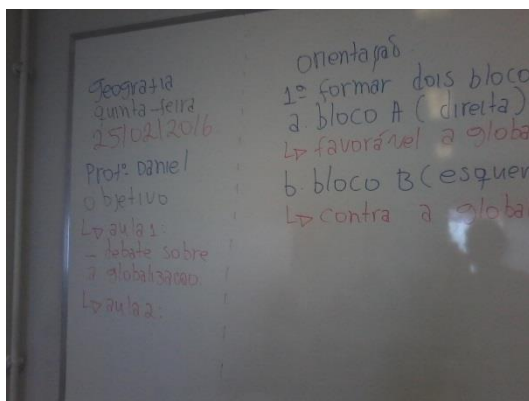 geografia
quinta-feira
25/02/2016
Profº Daniel
objetivo
↳ aula 1:
- debate sobre
a globalização.
↳ aula 2:
orientação
1º formar dois bloco
a. bloco A (direita)
↳ favorável a globa
b. bloco B (esquer
↳ contra a globa